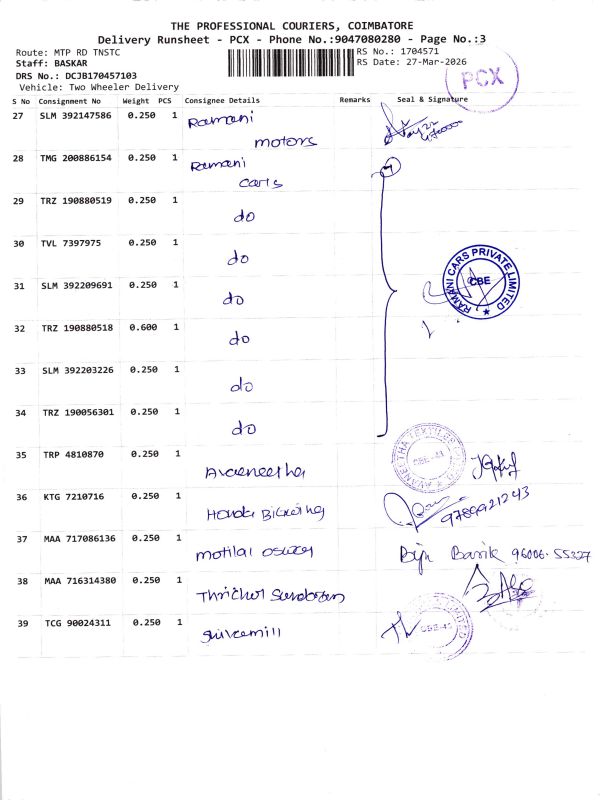 THE PROFESSIONAL COURIERS, COIMBATORE
Delivery Runsheet - PCX - Phone No.:9047080280 - Page No.:3
Route: MTP RD TNSTC RS No.: 1704571
Staff: BASKAR RS Date: 27-Mar-2026
DRS No.: DCJB170457103
Vehicle: Two Wheeler Delivery
PCX
S No Consignment No Weight PCS Consignee Details Remarks Seal & Signature
27 SLM 392147586 0.250 1 Ramani motors
28 TMG 200886154 0.250 1 Ramani cars 7
29 TRZ 190880519 0.250 1 do
30 TVL 7397975 0.250 1 do
31 SLM 392209691 0.250 1 do
RAMANI CARS PRIVATE LIMITED CBE
32 TRZ 190880518 0.600 1 do
33 SLM 392203226 0.250 1 do
34 TRZ 190056301 0.250 1 do
35 TRP 4810870 0.250 1 Avaneetha
36 KTG 7210716 0.250 1 Honda 9789921243
37 MAA 717086136 0.250 1 motilal 96006-55327
38 MAA 716314380 0.250 1
39 TCG 90024311 0.250 1